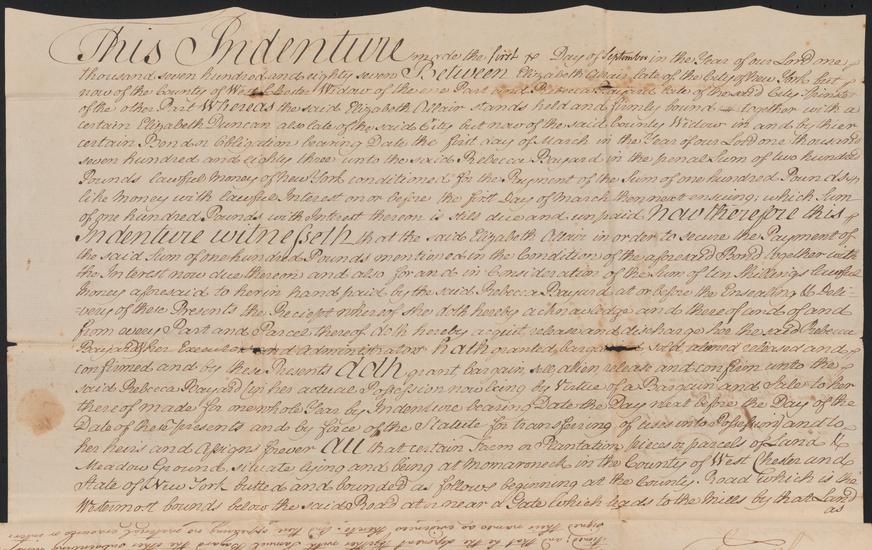 This Indenture made the first Day of September in the Year of our Lord one
thousand seven hundred and eighty seven Between Elizabeth Allair late of the City of New York but
now of the County of West Chester Widow of the one Part and Rebecca Bayard late of the said City
of the other Part Whereas the said Elizabeth Allair stands held and firmly bound together with a
certain Elizabeth Duncan also late of the said City but now of the said County Widow in and by their
certain Bond or Obligation bearing Date the first day of March in the Year of our Lord one thousand
seven hundred and eighty three unto the said Rebecca Bayard in the penal Sum of two hundred
Pounds lawful Money of New York conditioned for the Payment of the Sum of one hundred Pounds
like Money with lawful Interest on or before the first Day of March then next ensuing, which Sum
of one hundred Pounds with Interest thereon is still due and unpaid Now therefore this
Indenture witnesseth that the said Elizabeth Allair in order to secure the Payment of
the said Sum of one hundred Pounds mentioned in the Condition of the aforesaid Bond together with
the Interest now due thereon and also for and in Consideration of the Sum of ten Shillings lawful
Money aforesaid to her in hand paid by the said Rebecca Bayard at or before the Ensealing & Deli-
very of these Presents the Reciept whereof she doth hereby acknowledge and thereof and of and
from every Part and Parcel thereof doth hereby acquit release and discharge her the said Rebecca
Bayard her Executors and Administrators hath granted bargained sold aliened released and
confirmed and by these Presents doth grant bargain sell alien release and confirm unto the
said Rebecca Bayard (in her actual Possession now being by Virtue of a Bargain and Sale to her
thereof made for one whole Year by Indenture bearing Date the Day next before the Day of the
Date of these presents and by force of the Statute for transferring of uses into Possession) and to
her heirs and Assigns forever All that certain Farm or Plantation pieces or parcels of Land &
Meadow Ground, situate lying and being at Momaroneck in the County of West Chester and
State of New York butted and bounded as follows beginning at the County Road which is the
Westermost bounds below the said Road at or near a Gate which leads to the Mills by that Land
as